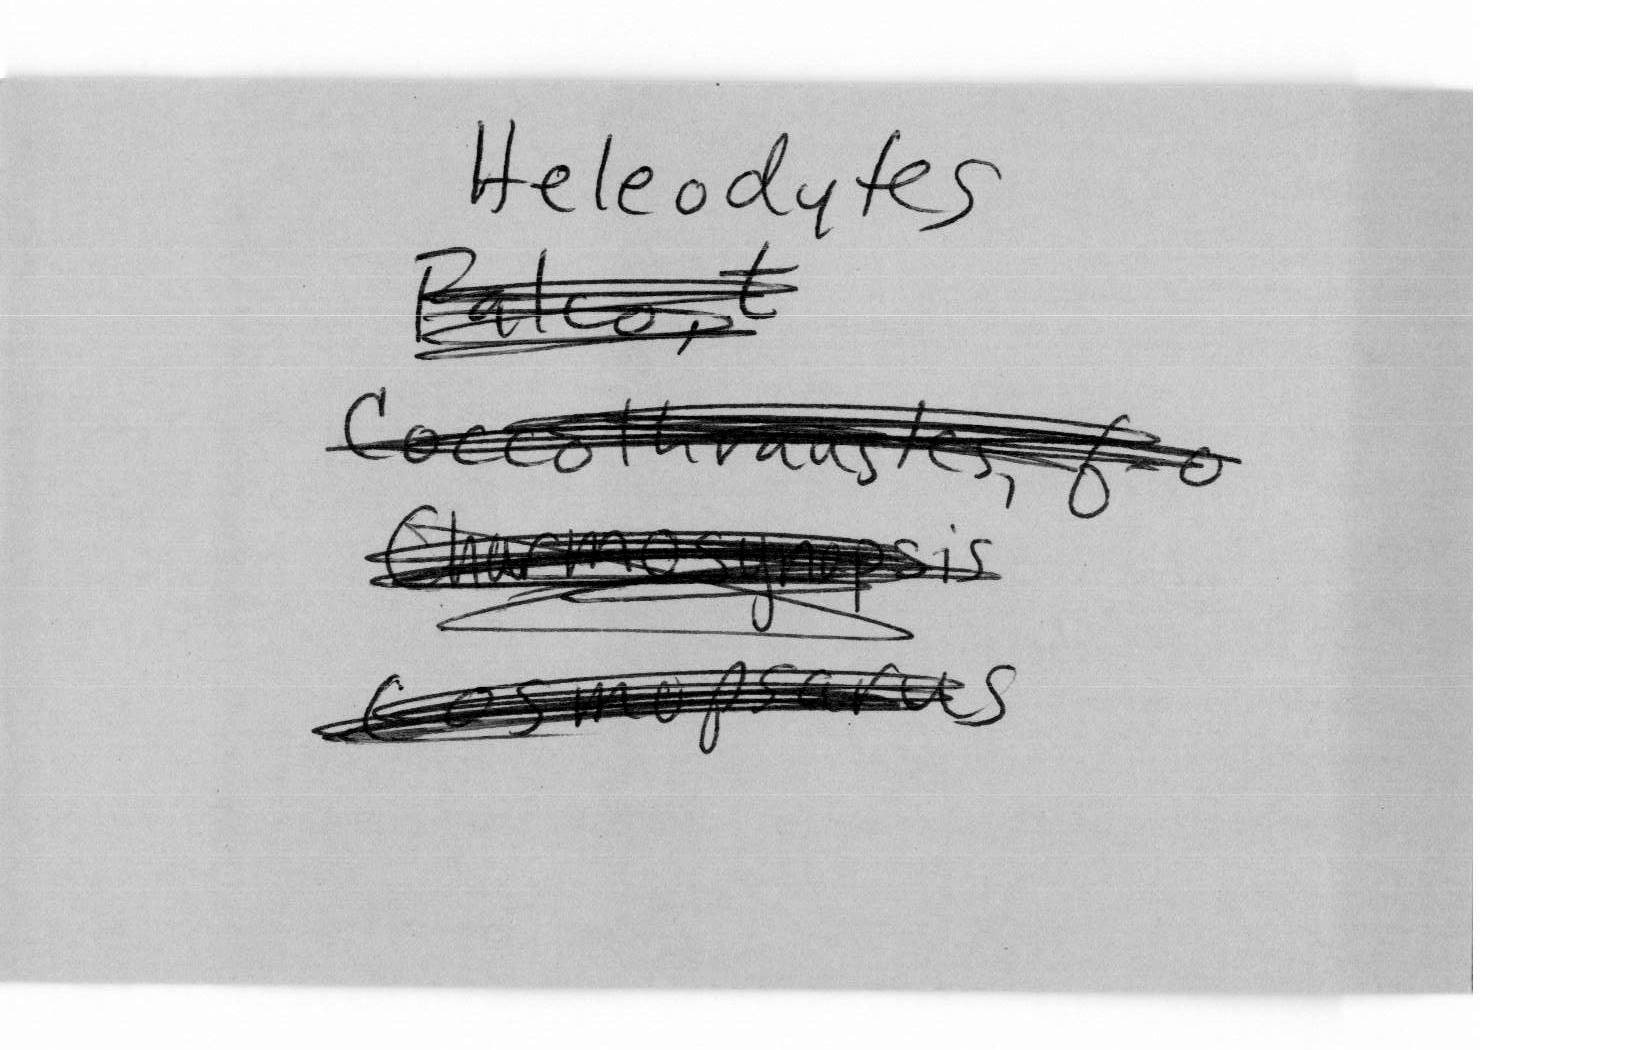 Heleodytes
Falco, t
Coccothraustes, f-o
Charmosynopsis
Cosmopsarus